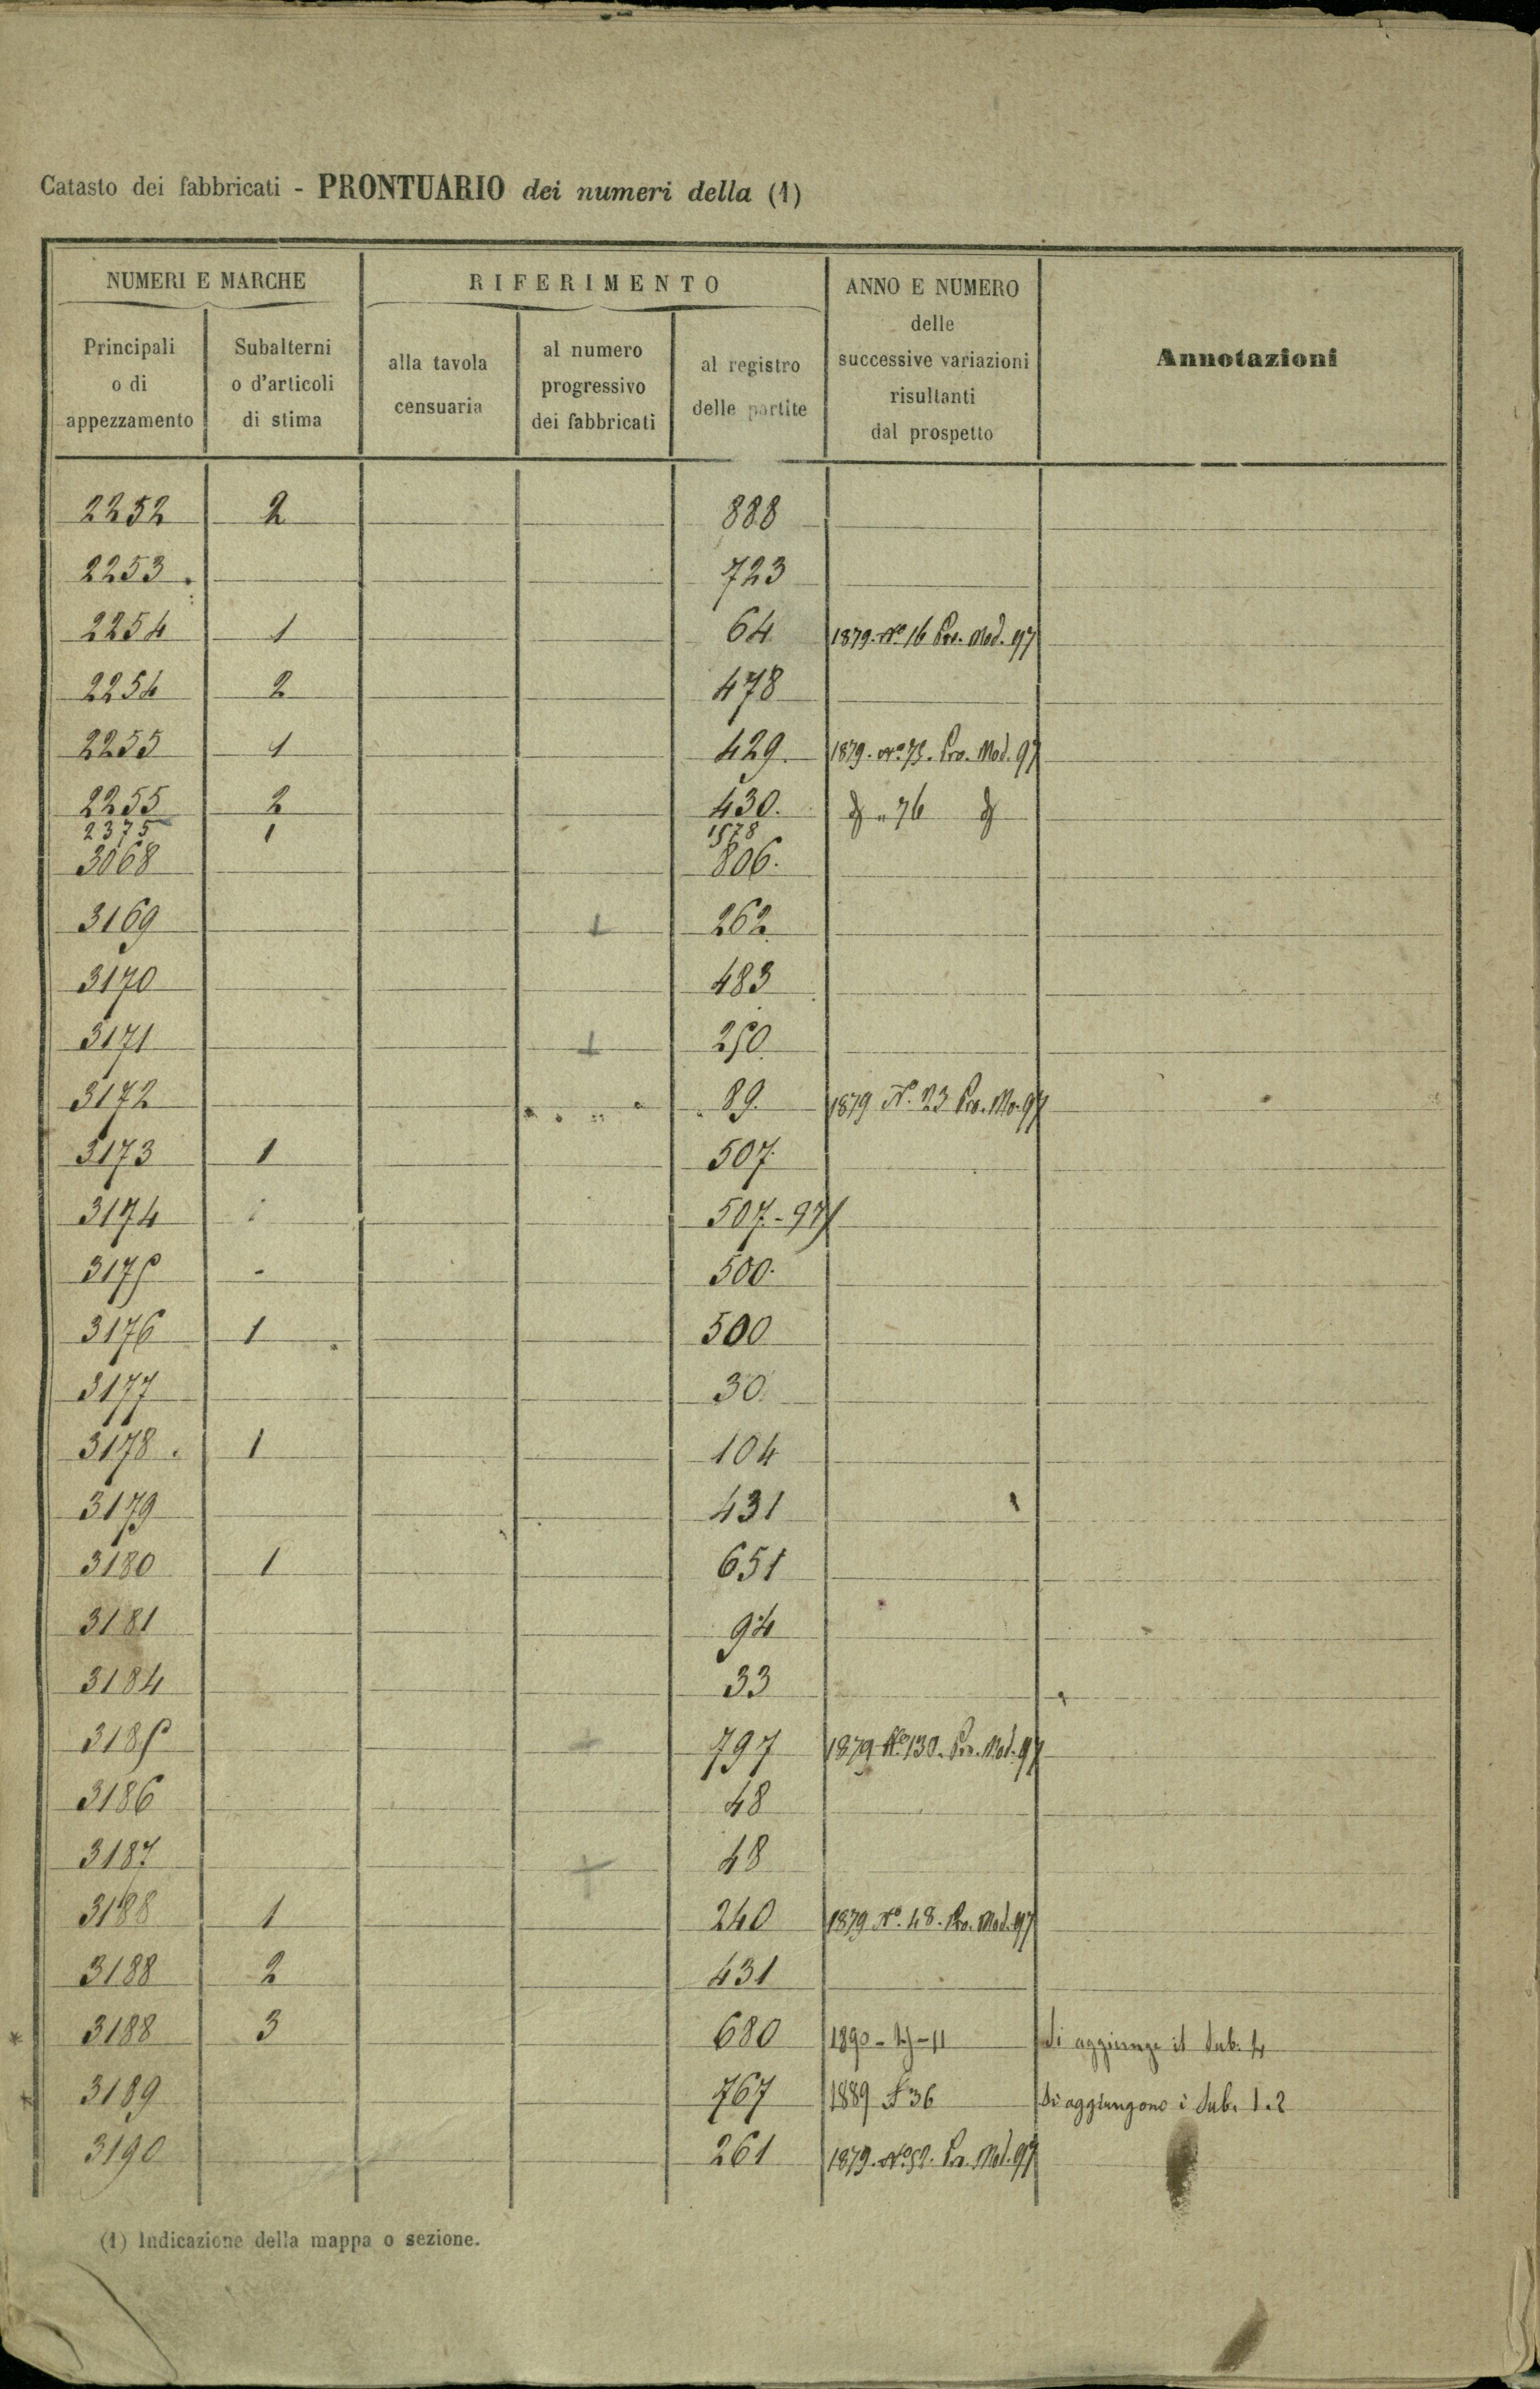 Catasto dei fabbricati - PRONTUARIO dei numeri della (1)
NUMERI E MARCHE RIFERIMENTO ANNO E NUMERO delle successive variazioni risultanti dal prospetto Annotazioni
Principali o di appezzamento Subalterni o d'articoli di stima alla tavola censuaria al numero progressivo dei fabbricati al registro delle partite
2252 2 888
2253. 723
2254 1 64 1879. No 16 Pro. Mod. 97
2254 2 478
2255 1 429. 1879. No 75. Pro. Mod. 97
2255 2 430. " 76
2375 1 1578
3068 806.
3169 + 262
3170 483
3171 + 250
3172 89. 1879 N. 23 Pro. Mo. 97
3173 1 507.
3174 507.-97
3175 - 500.
3176 1 500
3177 30.
3178. 1 104
3179 431
3180 1 651
3181 94
3184 33
3185 + 797 1879 No 130. Pro. Mod. 97
3186 48
3187 + 48
3188 1 240 1879 No. 48. Pro. Mod. 97
3188 2 431
* 3188 3 680 1890 - - 11 Si aggiunge il Sub. 4
* 3189 767 1889 36 Si aggiungono i Sub. 1.2
3190 261 1879. No 52. Pr. Mod. 97
(1) Indicazione della mappa o sezione.